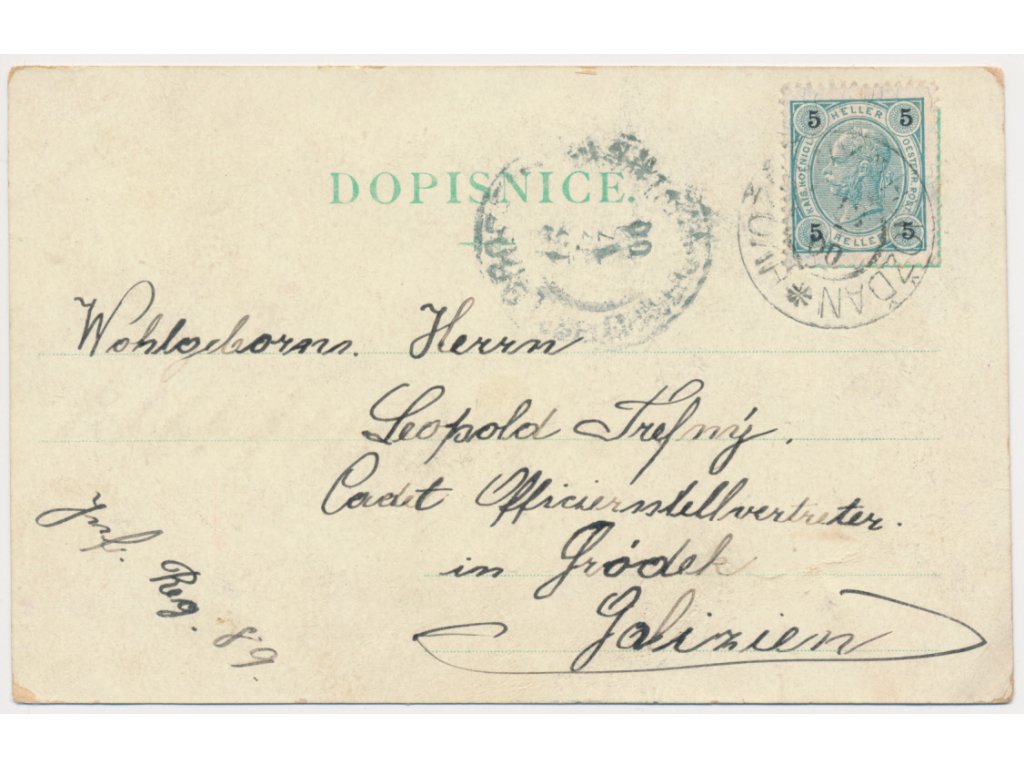 DOPISNICE.
5 HELLER 5
KAIS. KOENIGL. OESTERR. POST
5 HELLER 5
HVOZĎAN
Wohlgeborns. Herrn
Leopold Trefný.
Cadet Officierstellvertreter.
in Gródek
Galizien
Inf. Reg. 89.